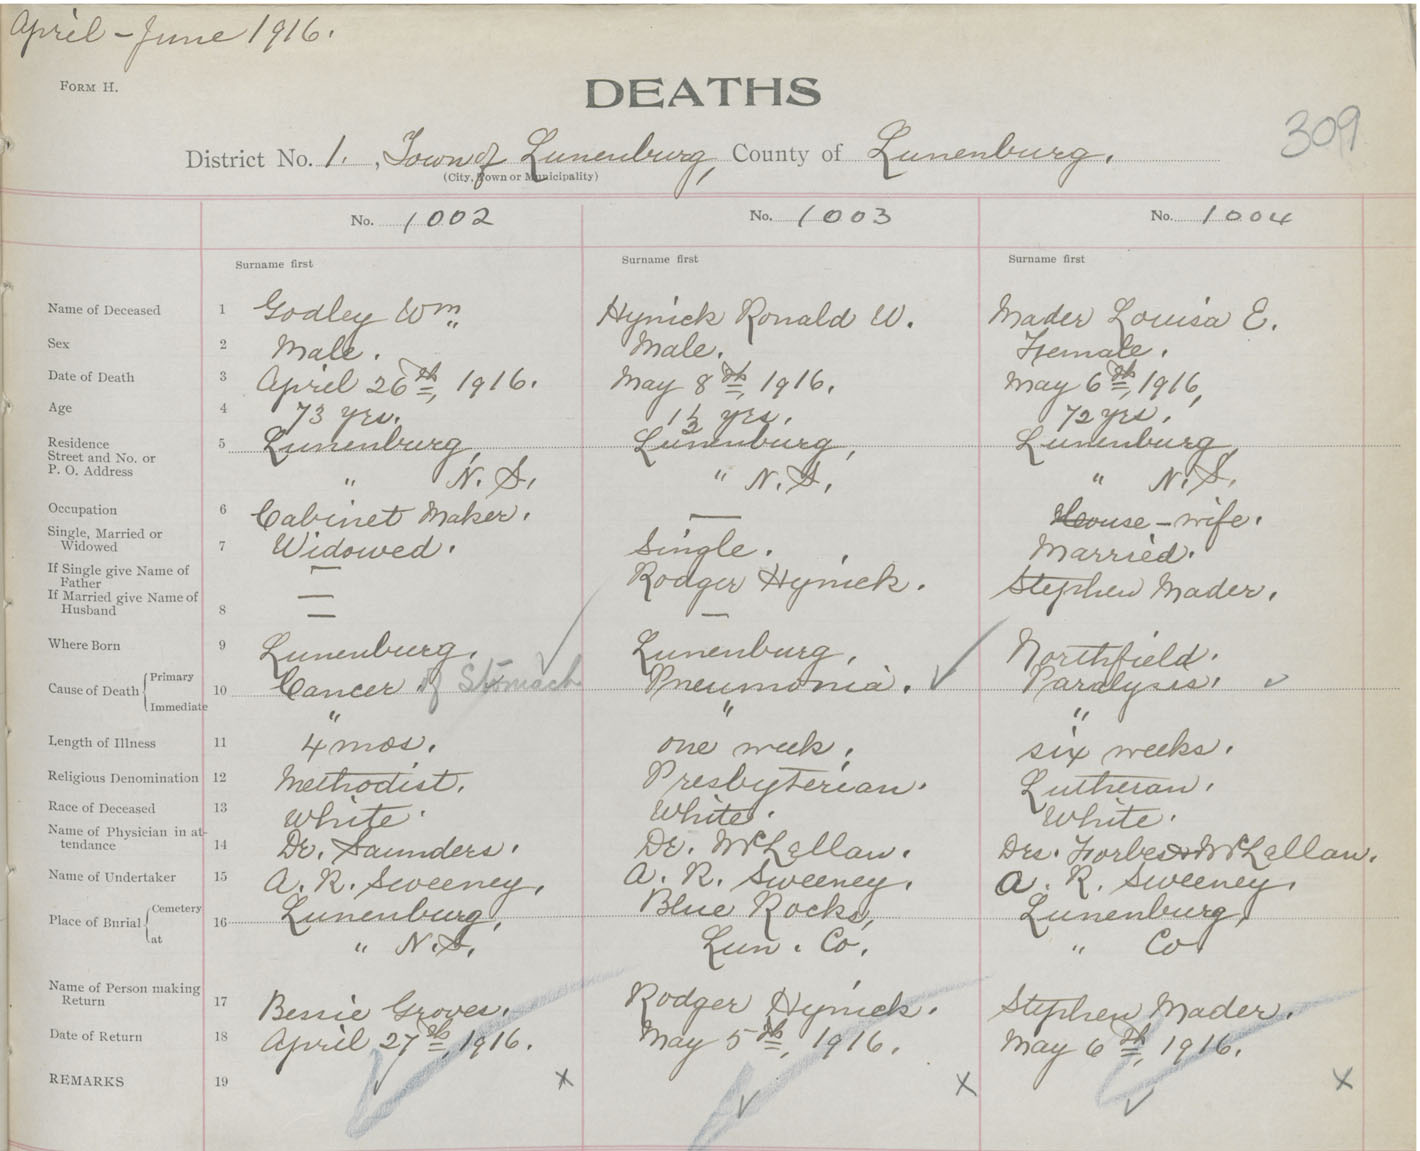 April - June 1916.
FORM H.
DEATHS
309
District No. 1. , Town of Lunenburg, County of Lunenburg.
(City, Town or Municipality)
No. 1002 No. 1003 No. 1004
Surname first Surname first Surname first
Name of Deceased 1 Godley Wm Hynick Ronald W. Mader Louisa E.
Sex 2 Male. Male. Female.
Date of Death 3 April 26th, 1916. May 8th, 1916. May 6th, 1916,
Age 4 73 yrs. 1½ yrs. 72 yrs.
Residence 5 Lunenburg, Lunenburg, Lunenburg,
Street and No. or
P. O. Address " N. S. " N. S. " N. S.
Occupation 6 Cabinet Maker. — House-wife.
Single, Married or
Widowed 7 Widowed. Single. Married.
If Single give Name of
Father — Rodger Hynick. Stephen Mader.
If Married give Name of —
Husband 8 — —
Where Born 9 Lunenburg. Lunenburg. Northfield.
Cause of Death { Primary 10 Cancer of Stomach Pneumonia. Paralysis.
Immediate " " "
Length of Illness 11 4 mos. one week. six weeks.
Religious Denomination 12 Methodist. Presbyterian. Lutheran.
Race of Deceased 13 White. White. White.
Name of Physician in at-
tendance 14 Dr. Saunders. Dr. McLellan. Drs. Forbes & McLellan.
Name of Undertaker 15 A. R. Sweeney. A. R. Sweeney. A. R. Sweeney.
Place of Burial { Cemetery 16 Lunenburg, Blue Rocks, Lunenburg,
at " N.S. Lun. Co. " Co
Name of Person making
Return 17 Bessie Groves. Rodger Hynick. Stephen Mader.
Date of Return 18 April 27th, 1916. May 5th, 1916. May 6th, 1916.
REMARKS 19 x x x